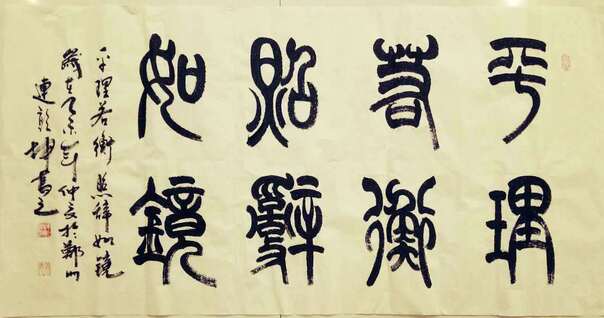 平理
若衡
照辭
如鏡
平理若衡照辭如鏡
歲在乙未年仲夏於鄭州
連書之